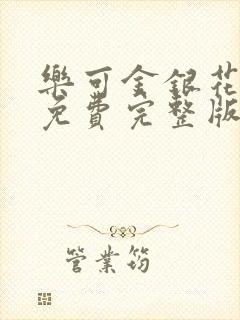 樂可金銀花
免費完整版
管業筠